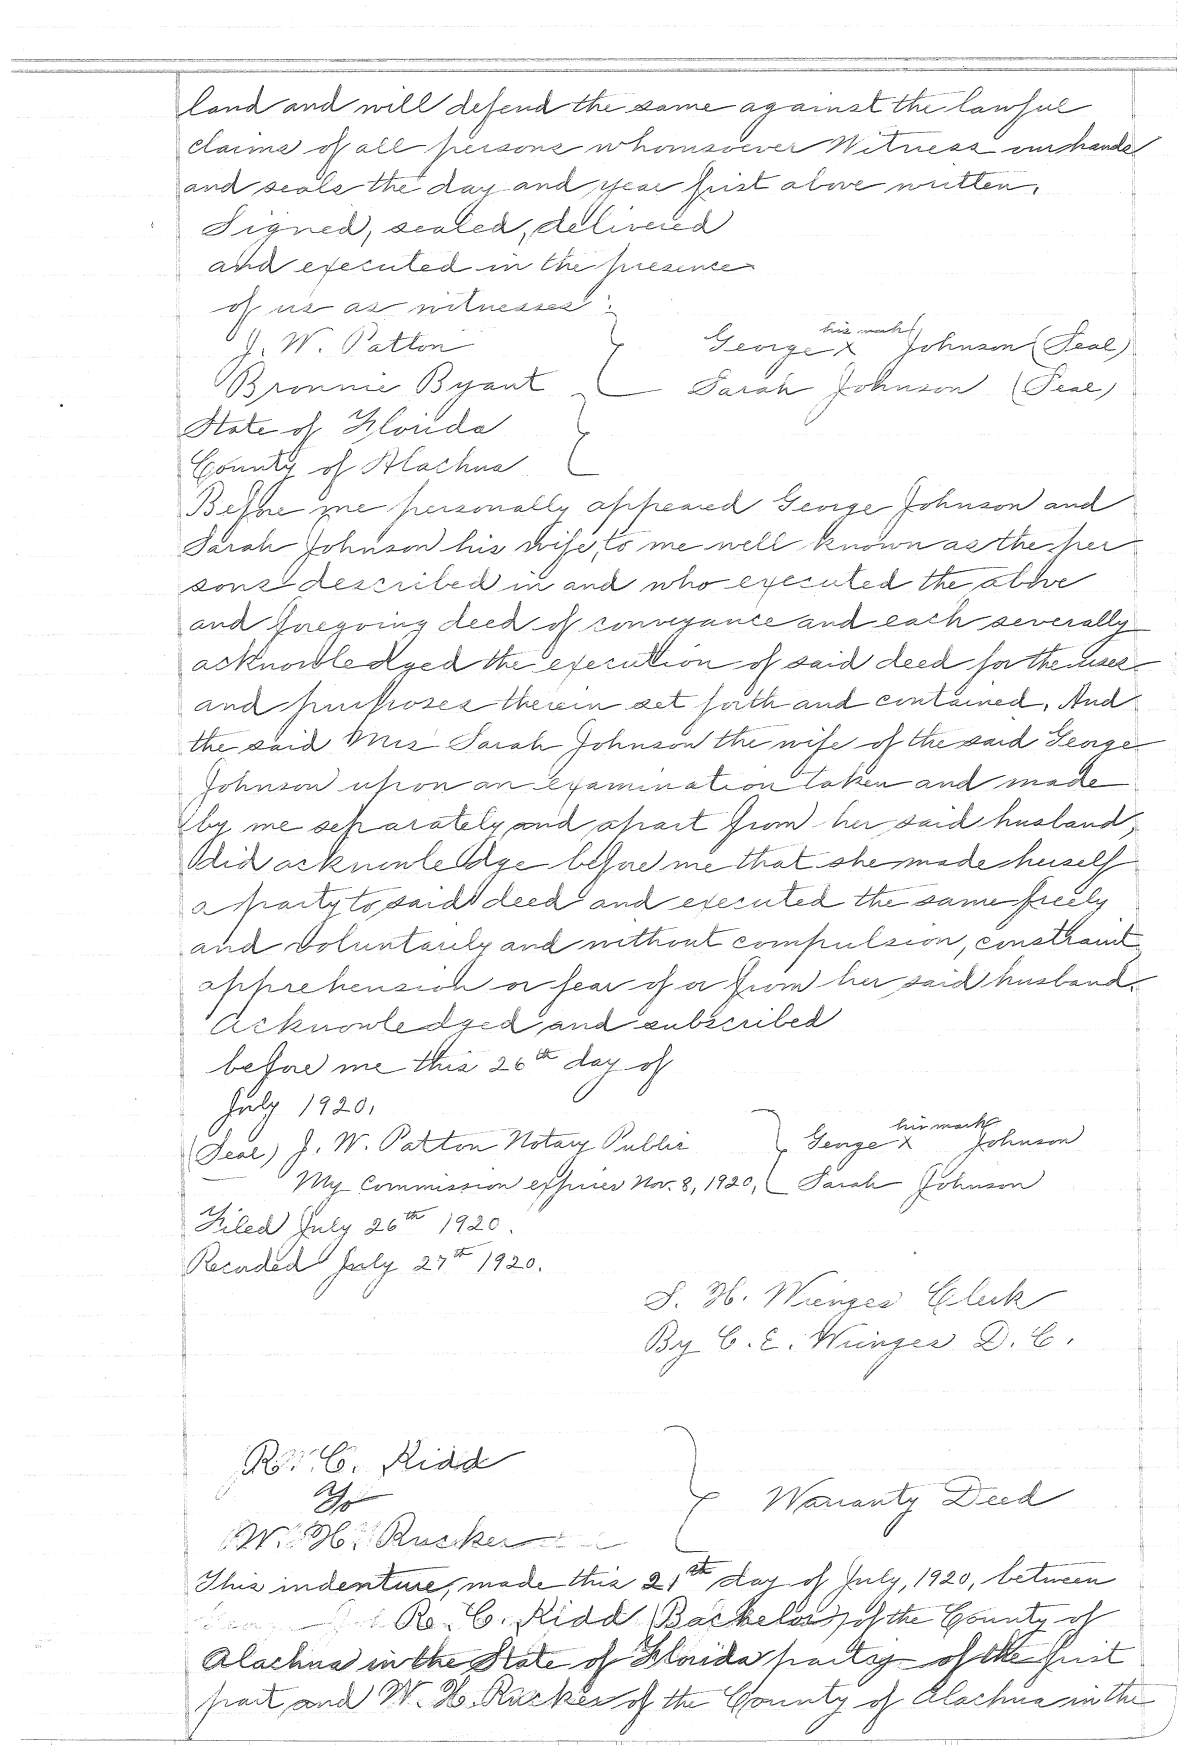 land and will defend the same against the lawful
claims of all persons whomsoever Witness our hands
and seals the day and year first above written.
Signed, sealed, delivered
and executed in the presence
of us as witnesses:
J. W. Patton
his mark
George X Johnson (Seal)
Bronnie Byant
Sarah Johnson (Seal)
State of Florida
County of Alachua
Before me personally appeared George Johnson and
Sarah Johnson his wife, to me well known as the per
sons described in and who executed the above
and foregoing deed of conveyance and each severally
acknowledged the execution of said deed for the uses
and purposes therein set forth and contained. And
the said Mrs Sarah Johnson the wife of the said George
Johnson upon an examination taken and made
by me separately and apart from her said husband,
did acknowledge before me that she made herself
a party to said deed and executed the same freely
and voluntarily and without compulsion, constraint,
apprehension or fear of or from her said husband.
Acknowledged and subscribed
before me this 26th day of
July 1920.
his mark
(Seal) J. W. Patton Notary Public George X Johnson
My Commission expires Nov. 8, 1920, Sarah Johnson
Filed July 26th 1920.
Recorded July 27th 1920.
S. H. Wienges Clerk
By C. E. Wienges D. C.
R. C. Kidd
To
Warranty Deed
W. H. Rucker
This indenture, made this 21st day of July, 1920, between
R. C. Kidd (Bachelor) of the County of
Alachua in the State of Florida party of the first
part and W. H. Rucker of the County of Alachua in the